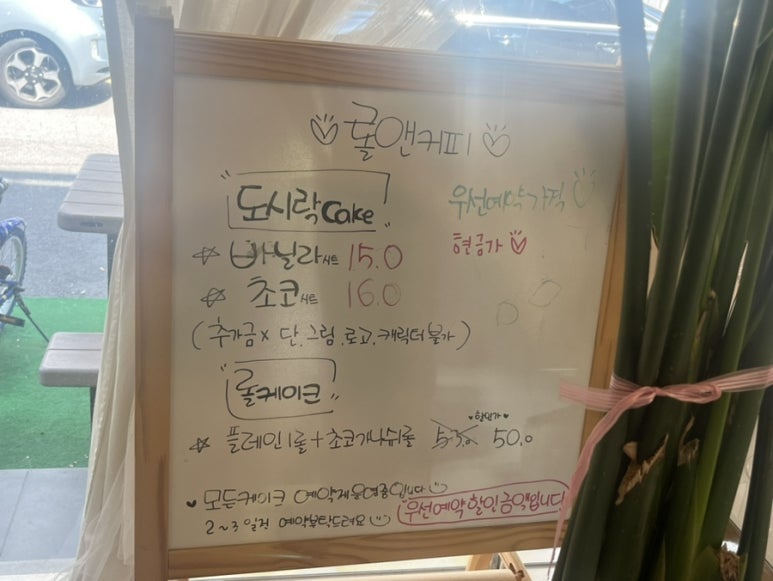 롤앤커피
도시락cake
우선예약가격
바닐라시트 15.0
현금가
초코시트 16.0
(추가금x 단, 그림, 로고, 캐릭터 불가)
롤케이크
할인가
플레인1롤+초코가나쉬1롤 53.0 50.0
모든케이크 예약제운영중입니다
우선예약할인금액입니다
2~3일전 예약부탁드려요